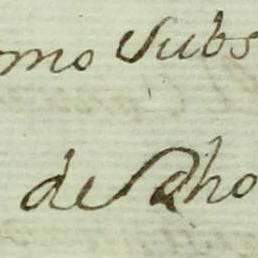 mo Subs
de Dho